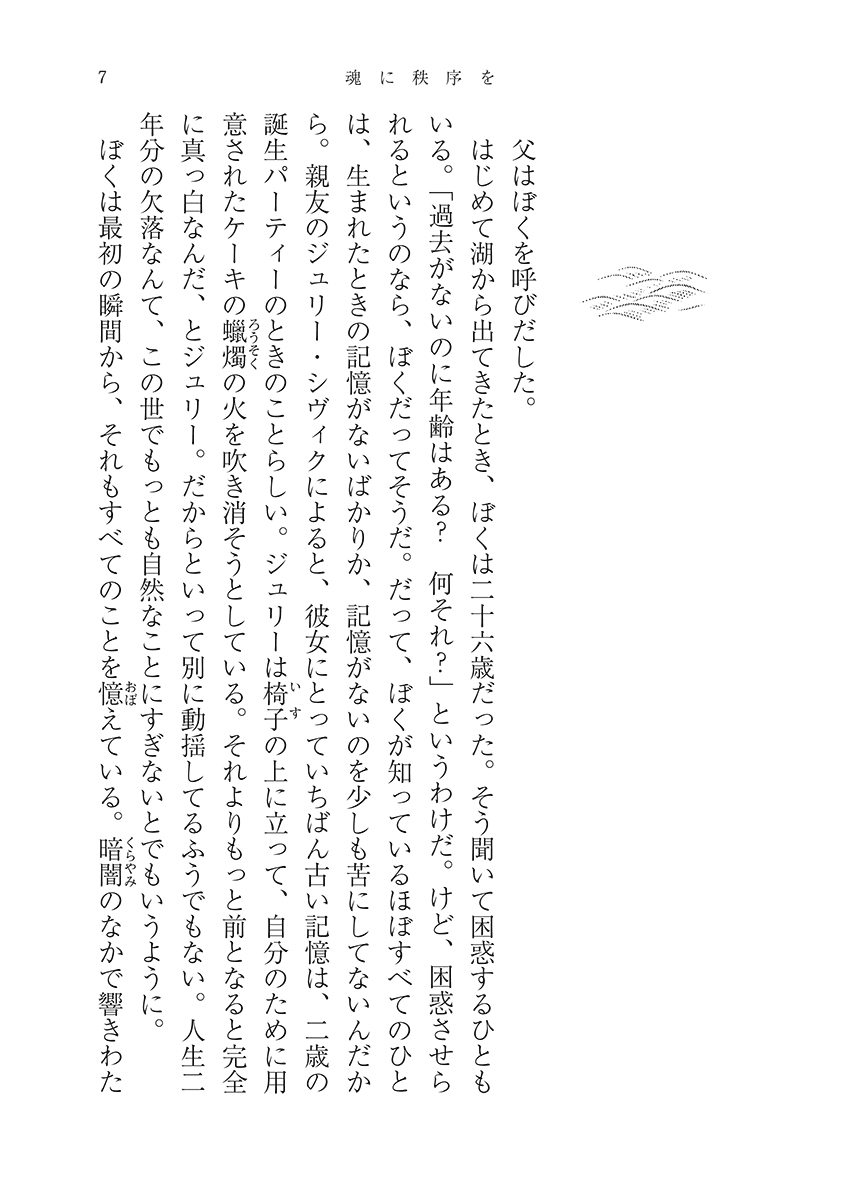 魂に秩序を
7
父はぼくを呼びだした。
はじめて湖から出てきたとき、ぼくは二十六歳だった。そう聞いて困惑するひとも
いる。「過去がないのに年齢はある？　何それ？」というわけだ。けど、困惑させら
れるというのなら、ぼくだってそうだ。だって、ぼくが知っているほぼすべてのひと
は、生まれたときの記憶がないばかりか、記憶がないのを少しも苦にしてないんだか
ら。親友のジュリー・シヴィクによると、彼女にとっていちばん古い記憶は、二歳の
誕生パーティーのときのことらしい。ジュリーは椅子の上に立って、自分のために用
意されたケーキの蠟燭の火を吹き消そうとしている。それよりもっと前となると完全
に真っ白なんだ、とジュリー。だからといって別に動揺してるふうでもない。人生二
年分の欠落なんて、この世でもっとも自然なことにすぎないとでもいうように。
ぼくは最初の瞬間から、それもすべてのことを憶えている。暗闇のなかで響きわた